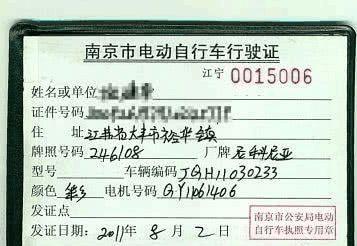 南京市电动自行车行驶证
江宁 0015006
姓名或单位
证件号码
住 址 江苏省大丰市 镇
牌照号码 246108 厂牌 尼科尼亚
型号 车辆编码 JGH11030233
颜色 彩 电机号码 GY1161406
发证点
发证日期: 2011年 8 月 2 日
南京市公安局电动
自行车执照专用章